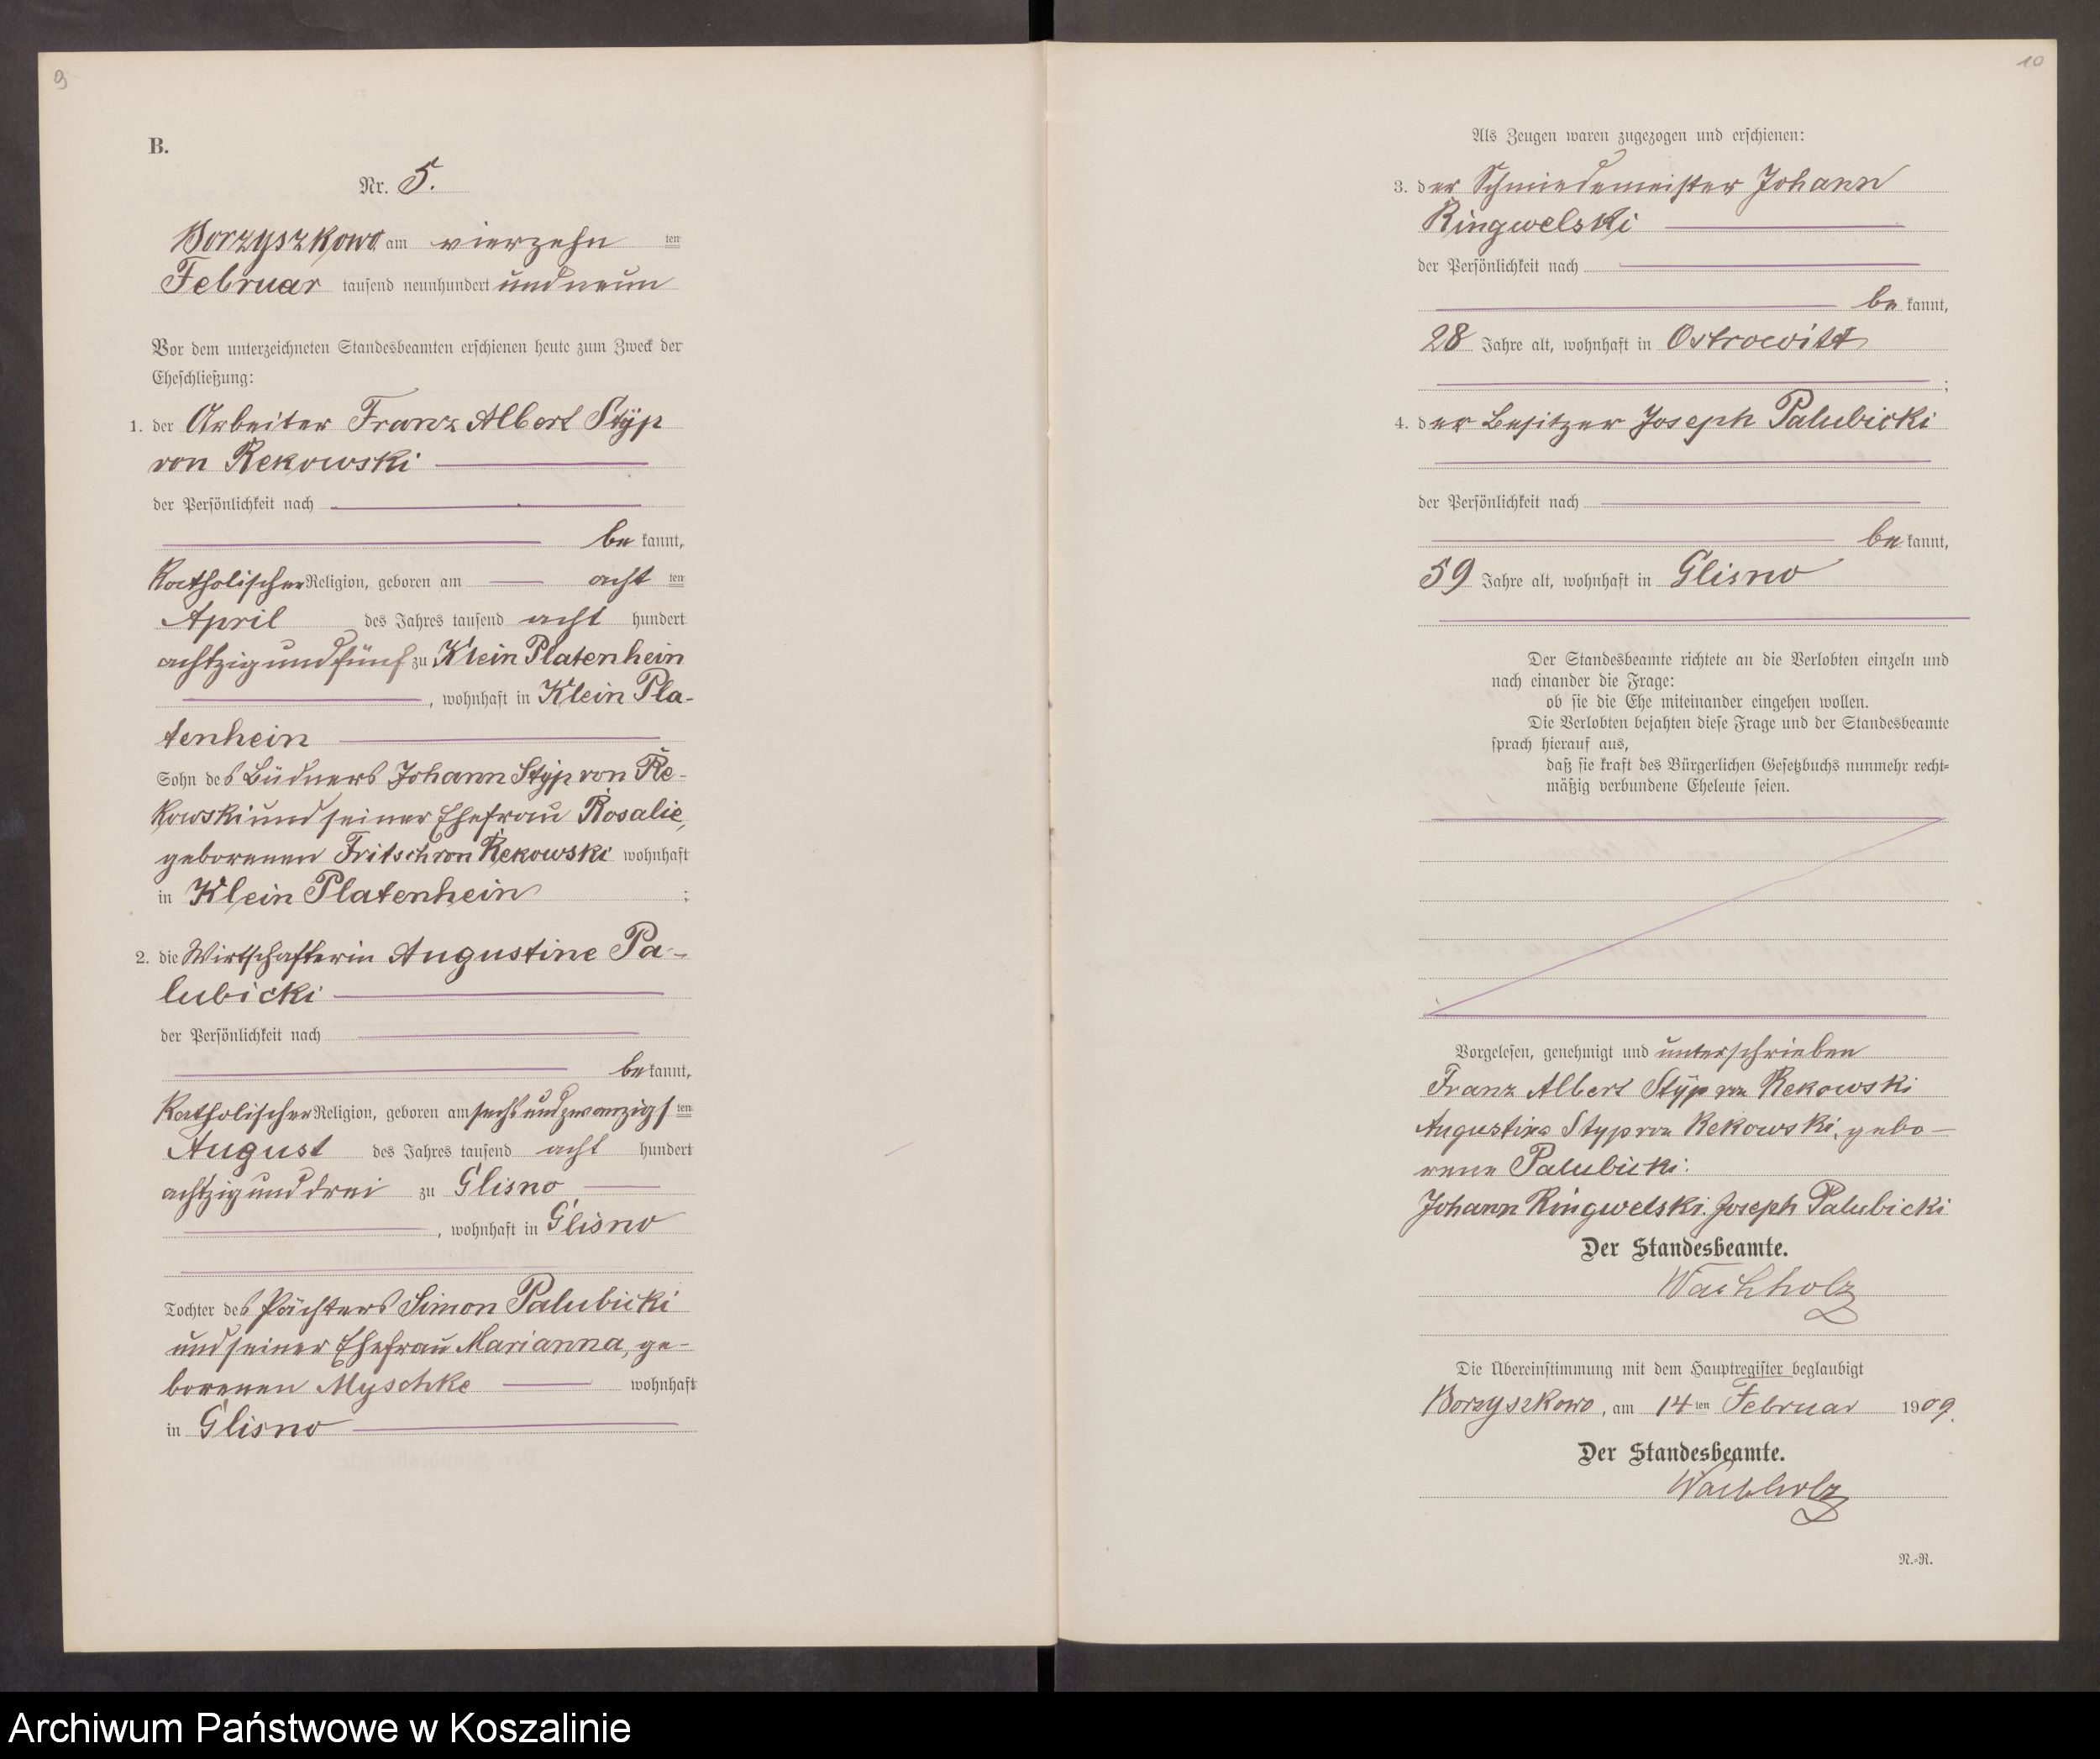 9
B.
Nr. 5.
Borzyszkowo am vierzehn ten
Februar tausend neunhundert und neun
Vor dem unterzeichneten Standesbeamten erschienen heute zum Zweck der
Eheschließung:
1. der Arbeiter Franz Albert Styp
von Rekowski
der Persönlichkeit nach
be kannt,
Katholischer Religion, geboren am acht ten
April des Jahres tausend acht hundert
achtzig und fünf zu Klein Platenhein
, wohnhaft in Klein Pla-
tenhein
Sohn des Büdners Johann Styp von Re-
kowski und seiner Ehefrau Rosalie,
geborenen Fritsch von Rekowski wohnhaft
in Klein Platenhein ;
2. die Wirtschafterin Augustine Pa-
lubicki
der Persönlichkeit nach
be kannt,
Katholischer Religion, geboren am sechs und zwanzigs ten
August des Jahres tausend acht hundert
achtzig und drei zu Glisno
, wohnhaft in Glisno
Tochter des Pächters Simon Palubicki
und seiner Ehefrau Marianna, ge-
borenen Myschke wohnhaft
in Glisno
10
Als Zeugen waren zugezogen und erschienen:
3. der Schmiedemeister Johann
Ringwelski
der Persönlichkeit nach
be kannt,
28 Jahre alt, wohnhaft in Ostrowitt
;
4. der Besitzer Joseph Palubicki
der Persönlichkeit nach
be kannt,
59 Jahre alt, wohnhaft in Glisno
Der Standesbeamte richtete an die Verlobten einzeln und
nach einander die Frage:
ob sie die Ehe miteinander eingehen wollen.
Die Verlobten bejahten diese Frage und der Standesbeamte
sprach hierauf aus,
daß sie kraft des Bürgerlichen Gesetzbuchs nunmehr recht-
mäßig verbundene Eheleute seien.
Vorgelesen, genehmigt und unterschrieben
Franz Albert Styp von Rekowski
Augustine Styp von Rekowski, gebo-
rene Palubicki.
Johann Ringwelski. Joseph Palubicki
Der Standesbeamte.
Wachholz
Die Übereinstimmung mit dem Hauptregister beglaubigt
Borzyszkowo, am 14 ten Februar 1909.
Der Standesbeamte.
Wachholz
N.-R.
Archiwum Państwowe w Koszalinie